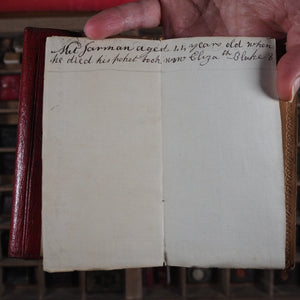 Mr Jarman aged 44 years old when
he died his pocket book now Eliza th Blake